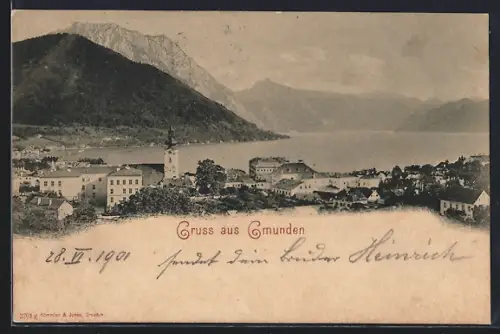 Gruss aus Gmunden
28.VI.1901 sendet dein Bruder Heinrich
2201 g Stengel & Co., Dresden